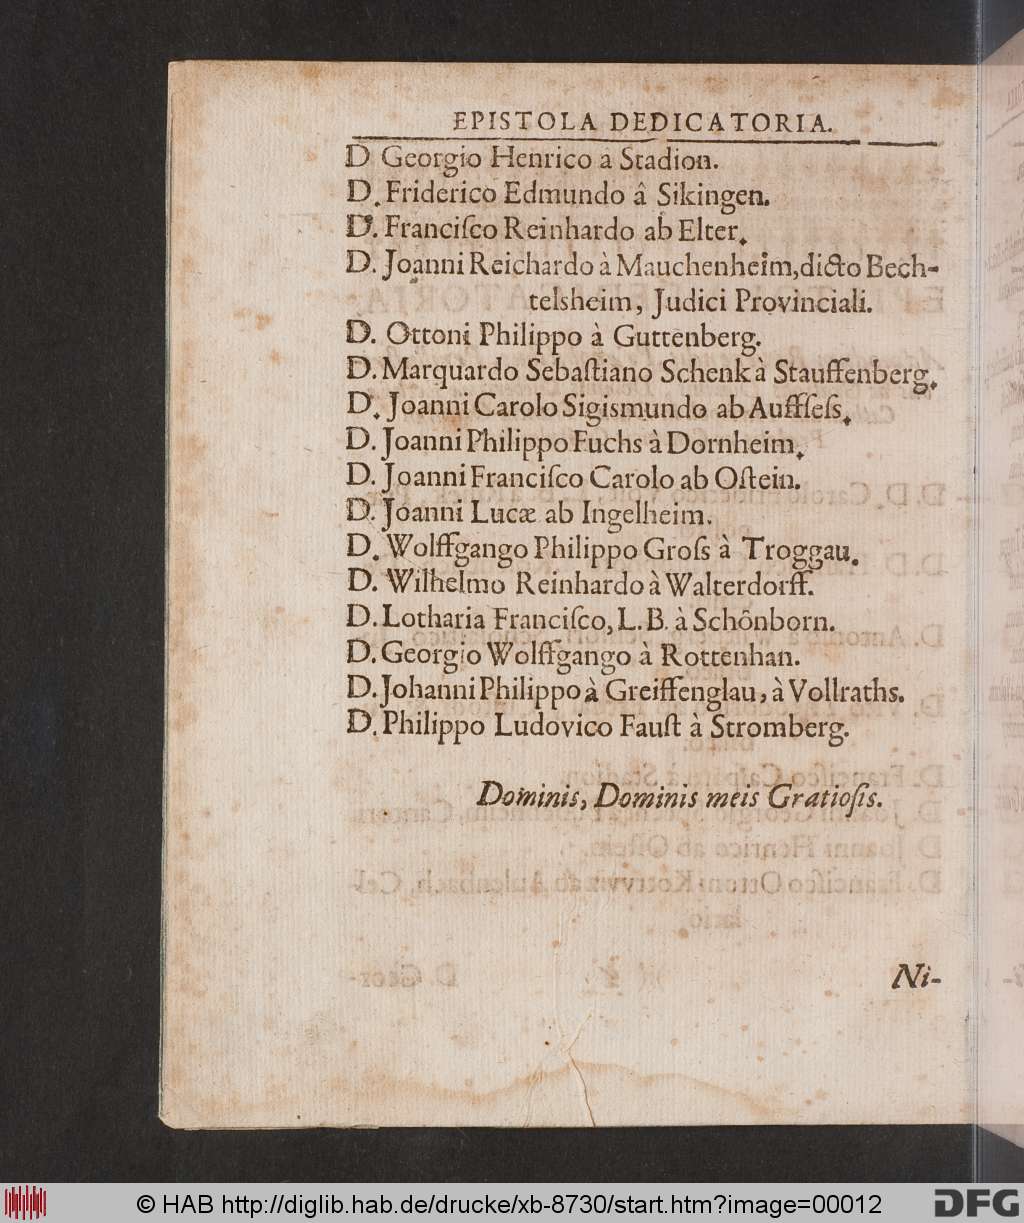 EPISTOLA DEDICATORIA.
D Georgio Henrico a Stadion.
D. Friderico Edmundo â Sikingen.
D. Franciſco Reinhardo ab Elter.
D. Joanni Reichardo à Mauchenheim, dicto Bech-
telsheim, Judici Provinciali.
D. Ottoni Philippo à Guttenberg.
D. Marquardo Sebaſtiano Schenk à Stauffenberg.
D. Joanni Carolo Sigismundo ab Auffſeſs.
D. Joanni Philippo Fuchs à Dornheim.
D. Joanni Franciſco Carolo ab Oſtein.
D. Joanni Lucæ ab Ingelheim.
D. Wolffgango Philippo Groſs à Troggau.
D. Wilhelmo Reinhardo à Walterdorff.
D. Lotharia Franciſco, L. B. à Schônborn.
D. Georgio Wolffgango à Rottenhan.
D. Johanni Philippo à Greiffenglau, à Vollraths.
D. Philippo Ludovico Fauſt à Stromberg.
Dominis, Dominis meis Gratioſis.
Ni-
© HAB http://diglib.hab.de/drucke/xb-8730/start.htm?image=00012
DFG